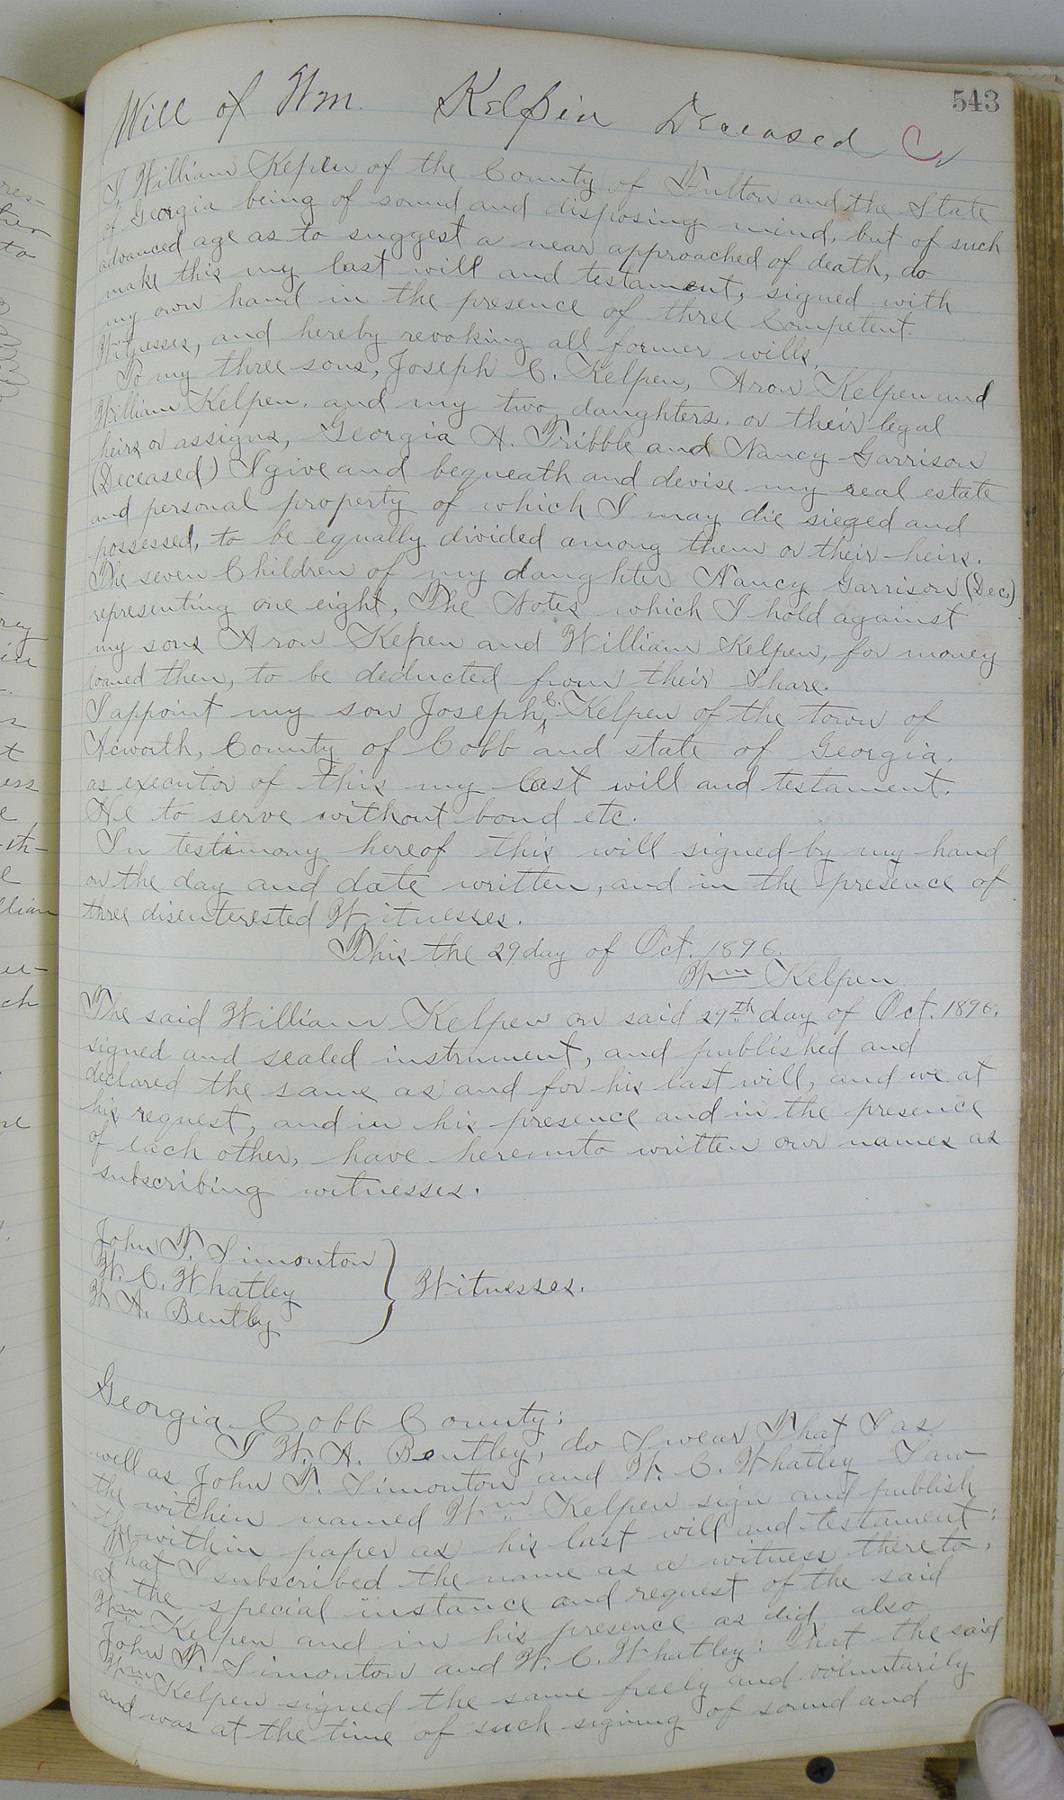 543
Will of Wm. Kelpin Deceased
I, William Kepen of the County of Fulton and the State
of Georgia being of sound and disposing mind, but of such
advanced age as to suggest a near approached of death, do
make this my last will and testament, signed with
my own hand in the presence of three Competent
Witnesses, and hereby revoking all former wills,
To my three sons, Joseph C. Kelpen, Aron Kelpen and
William Kelpen. and my two daughters. or their legal
heirs or assigns, Georgia A. Tribble and Nancy Garrison
(Deceased) I give and begneath and devise my real estate
and personal property of which I may die sieged and
possessed, to be equally divided among them or their heirs.
The seven Children of my daughter Nancy Garrison (Dec.)
representing one eight, The Notes which I hold against
my sons Aron Kepen and William Kelpen, for money
loaned then, to be deducted from their Share.
I appoint my son Joseph C. Kelpen of the town of
Acworth, County of Cobb and state of Georgia.
as executor of this my last will and testament.
He to serve without bond etc.
In testimony hereof this will signed by my hand
on the day and date written, and in the presence of
three disenterested Witnesses.
This the 29 day of Oct. 1896.
Wm Kelpen
The said William Kelpen on said 29th day of Oct. 1896.
signed and sealed instrument, and published and
declared the same as and for his last will, and we at
his request, and in his presence and in the presence
of each other, have hereunto written our names as
subscribing witnesses.
John T. Simonton
W. C. Whatley } Witnesses.
W. A. Bentley
Georgia Cobb County:
I W. A. Bentley, do Swear That I as
well as John T. Simonton and W. C. Whatley Saw
the within named Wm Kelpen sign and publish
the within paper as his last will and testament:
That I subscribed the name as a witness thereto,
at the special instance and request of the said
Wm Kelpen and in his presence as did also
John T. Simonton and W. C. Whatley: That the said
Wm Kelpen signed the same freely and voluntarily
and was at the time of such signing of sound and